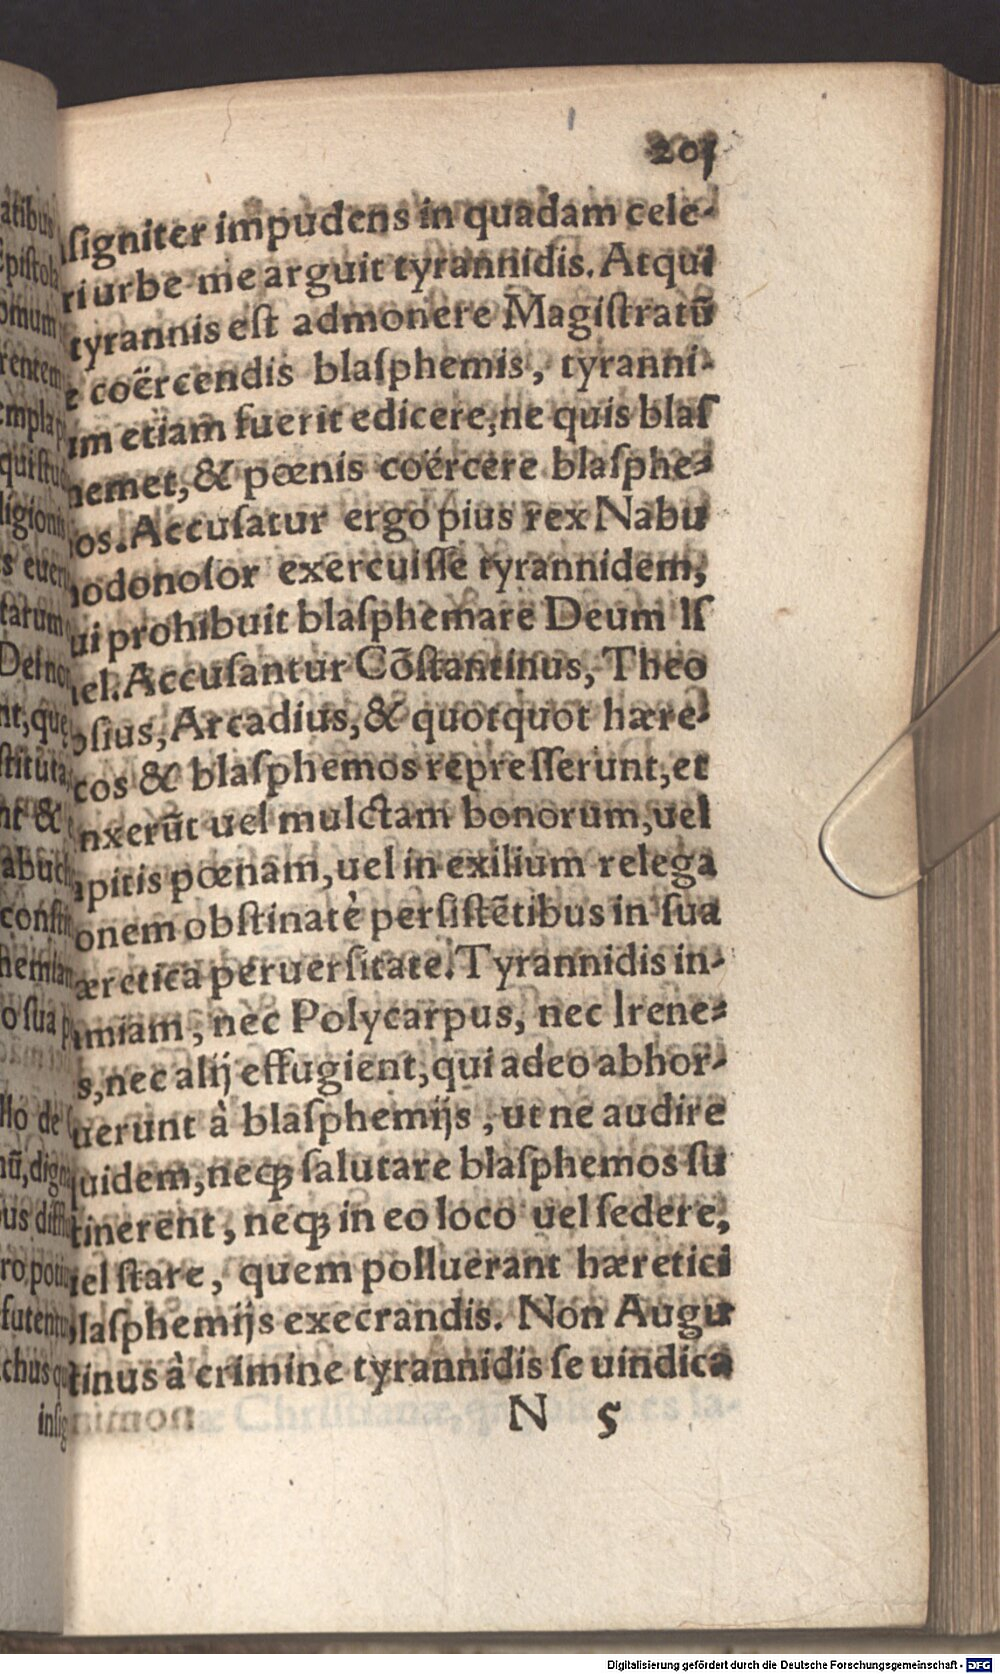 201
ſigniter impudens in quadam cele-
ri urbe me arguit tyrannidis. Atqui
tyrannis est admonere Magiſtratũ
e coërcendis blaſphemis, tyranni-
im etiam fuerit edicere, ne quis blaſ
hemet, & pœnis coërcere blaſphe-
ios. Accuſatur ergo pius rex Nabu
hodonoſor exercuiſſe tyrannidem,
ui prohibuit blaſphemare Deum Iſ
iel. Accuſantur Cõſtantinus, Theo
oſius, Arcadius, & quotquot hære-
cos & blaſphemos repreſſerunt, et
nxerũt uel mulctam bonorum, uel
apitis pœnam, uel in exilium relega
onem obſtinatè perſiſtẽtibus in ſua
æretica peruerſitate. Tyrannidis in-
imiam, nec Polycarpus, nec Irene-
s, nec alij effugient, qui adeo abhor-
uerunt à blaſphemijs, ut ne audire
quidem, neqꝫ ſalutare blaſphemos ſu
tinerent, neqꝫ in eo loco uel ſedere,
uel ſtare, quem polluerant hæretici
blaſphemijs execrandis. Non Augu
tinus à crimine tyrannidis ſe uindica
N 5
Digitalisierung gefördert durch die Deutsche Forschungsgemeinschaft - DFG